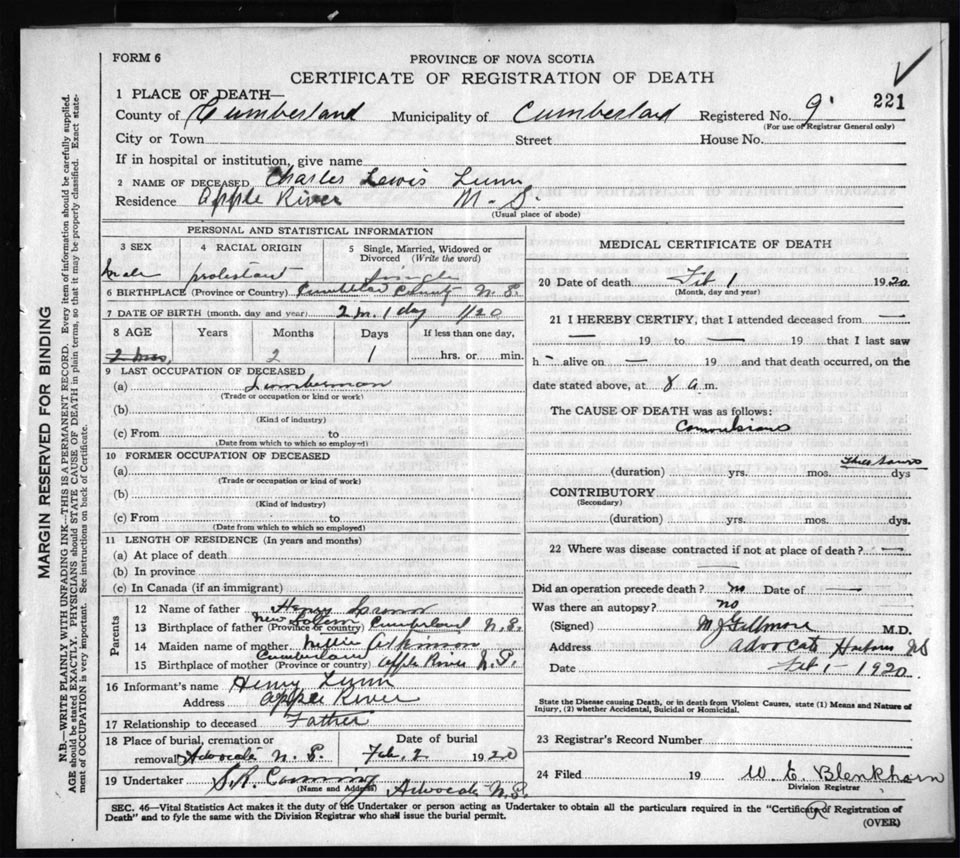 FORM 6
PROVINCE OF NOVA SCOTIA
CERTIFICATE OF REGISTRATION OF DEATH
221
1 PLACE OF DEATH—
County of Cumberland Municipality of Cumberland Registered No. 9
(For use of Registrar General only)
City or Town Street House No.
If in hospital or institution, give name
2 NAME OF DECEASED Charles Lewis Lunn
Residence Apple River N. S.
(Usual place of abode)
PERSONAL AND STATISTICAL INFORMATION
3 SEX 4 RACIAL ORIGIN 5 Single, Married, Widowed or Divorced (Write the word)
male protestant single
6 BIRTHPLACE (Province or Country) Cumberland County N. S.
7 DATE OF BIRTH (month, day and year) 2 m. 1 day 1/20
8 AGE Years Months Days If less than one day,
2 mos. 2 1 hrs. or min.
9 LAST OCCUPATION OF DECEASED
(a) Lumberman
(Trade or occupation or kind or work)
(b)
(Kind of industry)
(c) From to
(Date from which to which so employed)
10 FORMER OCCUPATION OF DECEASED
(a)
(Trade or occupation or kind of work)
(b)
(Kind of industry)
(c) From to
(Date from which to which so employed)
11 LENGTH OF RESIDENCE (In years and months)
(a) At place of death
(b) In province
(c) In Canada (if an immigrant)
Parents
12 Name of father Henry
13 Birthplace of father (Province or country) New Salem Cumberland N. S.
14 Maiden name of mother Atkinson
15 Birthplace of mother (Province or country) Cumberland Apple River N. S.
16 Informant's name Henry Lunn
Address Apple River
17 Relationship to deceased Father
18 Place of burial, cremation or Date of burial
removal Advocate N. S. Feb. 2 1920
19 Undertaker S. R.
(Name and Address) Advocate N. S.
MEDICAL CERTIFICATE OF DEATH
20 Date of death Feb 1 1920
(Month, day and year)
21 I HEREBY CERTIFY, that I attended deceased from —
— 19 to — 19 that I last saw
h— alive on — 19 and that death occurred, on the
date stated above, at 8 a m.
The CAUSE OF DEATH was as follows:
Convulsions
three hours
(duration) yrs. mos. dys
CONTRIBUTORY
(Secondary)
(duration) yrs. mos. dys.
22 Where was disease contracted if not at place of death? —
—
Did an operation precede death? no Date of —
Was there an autopsy? no
(Signed) M J Gillmore M.D.
Address Advocate Harbour NS
Date Feb 1 - 1920
State the Disease causing Death, or in death from Violent Causes, state (1) Means and Nature of
Injury, (2) whether Accidental, Suicidal or Homicidal.
23 Registrar's Record Number
24 Filed 19 W. E. Blenkhorn
Division Registrar
SEC. 46—Vital Statistics Act makes it the duty of the Undertaker or person acting as Undertaker to obtain all the particulars required in the "Certificate of Registration of
Death" and to fyle the same with the Division Registrar who shall issue the burial permit.
(OVER)
MARGIN RESERVED FOR BINDING
N.B.—WRITE PLAINLY WITH UNFADING INK—THIS IS A PERMANENT RECORD. Every item of information should be carefully supplied.
AGE should be stated EXACTLY. PHYSICIANS should STATE CAUSE OF DEATH in plain terms, so that it may be properly classified. Exact state-
ment of OCCUPATION is very important. See instructions on back of Certificate.